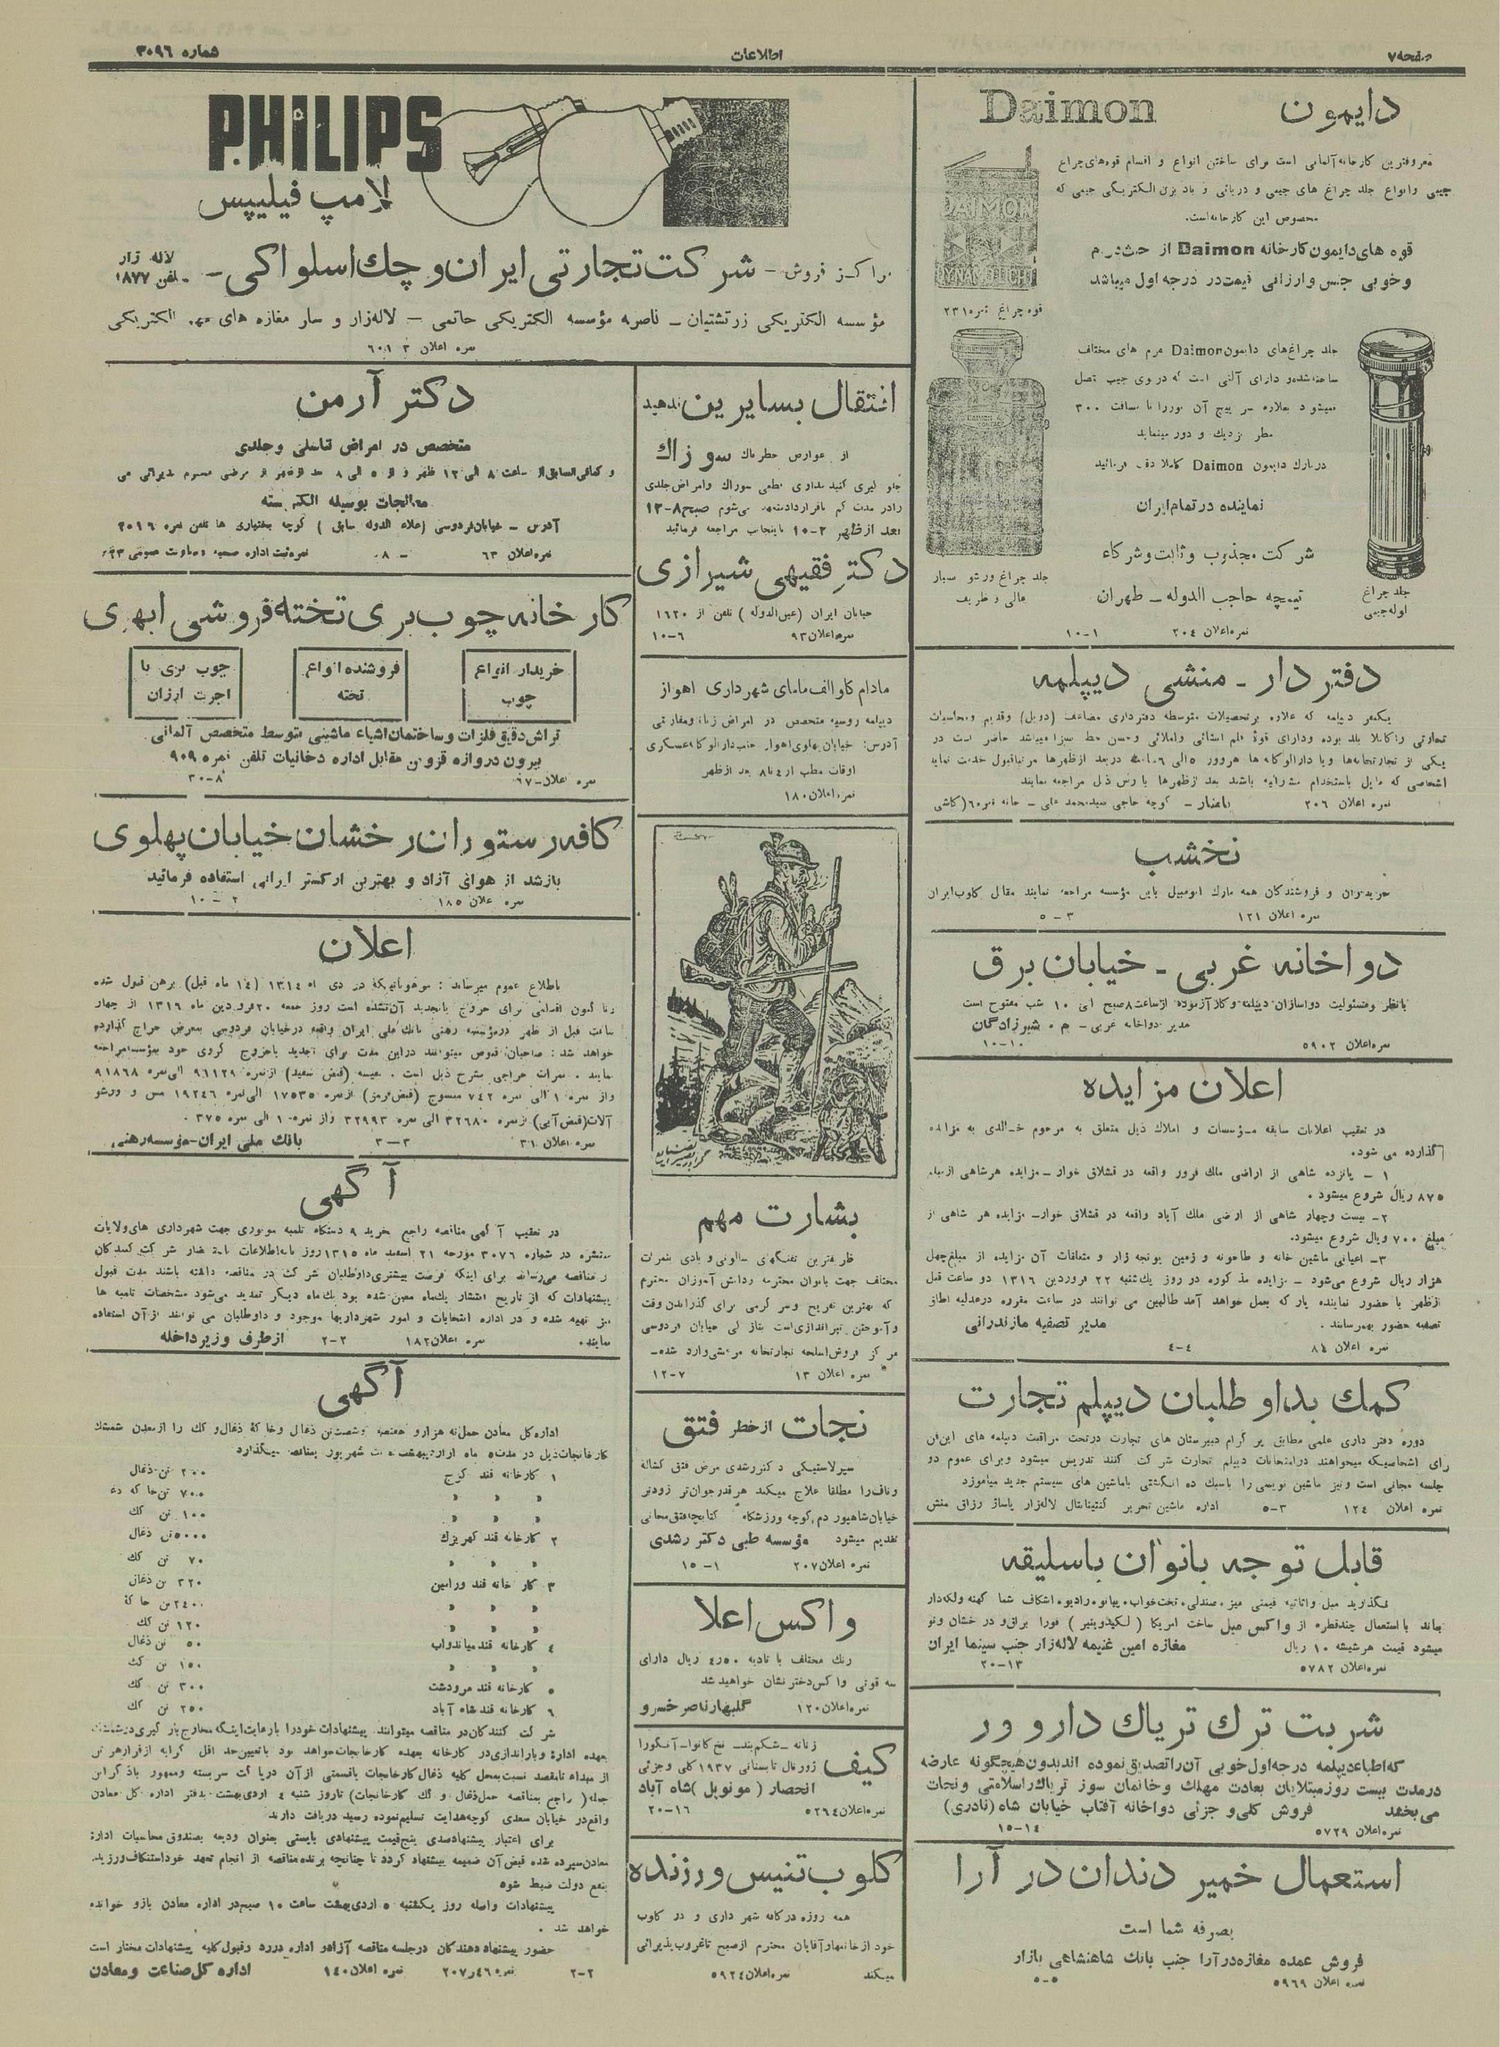 صفحه ۷
اطلاعات
شماره ۳۰۹۶
دایمون Daimon
معروفترین کارخانه آلمانی است برای ساختن انواع و اقسام قوه‌های چراغ
جیبی وانواع جلد چراغ های جیبی و دریائی و باد بزن الکتریکی جیبی که
مخصوص این کارخانه است.
قوه های دایمون کارخانه Daimon از حیث دوام
وخوبی جنس وارزانی قیمت در درجه اول میباشد
DAIMON
قوه چراغ نمره ۲۳۱
جلد چراغ‌های دایمون Daimon فرم های مختلف
ساخته شده و دارای آلتی است که در روی جیب متصل
میشود بعلاوه سر پیچ آن نور را تا مسافت ۳۰۰
متر نزدیك و دور مینماید
در مارك دایمون Daimon کاملا دقت فرمائید
نماینده در تمام ایران
شرکت مجذوب و ثالث و شرکاء
تیمچه حاجب الدوله - طهران
جلد چراغ ورشو بسیار
عالی و ظریف
جلد چراغ
لوله جیبی
نمره اعلان ۲۰۴ ۱-۱۰
دفتر دار - منشی دیپلمه
یکنفر دیپلمه که علاوه بر تحصیلات متوسطه دفتر داری مضاعف (دوبل) وقدیم ومحاسبات
تجارتی را کاملا بلد بوده ودارای قوۀ قلم انشائی واملائی وحسن خط بسزا میباشد حاضر است در
یکی از تجارتخانه‌ها ویا دارالوکاله ها هرروز ۵ الی ۶ ساعت در بعد از ظهرها مرتبا قبول خدمت نماید
اشخاصی که مایل باستخدام مشارالیه باشند بعد از ظهرها بآدرس ذیل مراجعه نمایند
نمره اعلان ۲۰۶ پامنار - کوچه حاجی سید محمد علی - خانه نمره ۶ (کاشی
نخشب
خریداران و فروشندگان همه مارك اتومبیل باین مؤسسه مراجعه نمایند مقابل کلوب ایران
نمره اعلان ۱۲۱ ۳-۵
دواخانه غربی - خیابان برق
بانظر ومسئولیت دواسازان دیپلمه وکار آزموده از ساعت ۸ صبح الی ۱۰ شب مفتوح است
مدیر دواخانه غربی - م . شیرزادگان
نمره اعلان ۵۹۰۲ ۱۰-۱۰
اعلان مزایده
در تعقیب اعلانات سابقه مؤسسات و املاك ذیل متعلق به مرحوم خالدی به مزایده
گذارده می شود.
۱ - پانزده شاهی از اراضی ملك فرور واقعه در قشلاق خوار - مزایده هر شاهی از مبلغ
۸۷۵ ریال شروع میشود .
۲- بیست وچهار شاهی از اراضی ملك آباد واقعه در قشلاق خوار- مزایده هر شاهی از
مبلغ ۷۰۰ ریال شروع میشود.
۳- اعیانی ماشین خانه و طاحونه و زمین یونجه زار و متعلقات آن مزایده از مبلغ چهل
هزار ریال شروع می‌شود - مزایده مذکوره در روز یك شنبه ۲۲ فروردین ۱۳۱۶ دو ساعت قبل
از ظهر با حضور نماینده پارکه بعمل خواهد آمد طالبین می توانند در ساعت مقرره در عدلیه اطاق
تصفیه حضور بهمرسانند . مدیر تصفیه مازندرانی
نمره اعلان ۸۴ ۴-۴
کمك بداوطلبان دیپلم تجارت
دوره دفتر داری علمی مطابق پرگرام دبیرستان های تجارت در تحت مراقبت دیپلمه های این فن
برای اشخاصیکه میخواهند در امتحانات دیپلم تجارت شرکت کنند تدریس میشود وبرای عموم دو
جلسه مجانی است ونیز ماشین نویسی را باسبك ده انگشتی باماشین های سیستم جدید میاموزد
نمره اعلان ۱۲۴ ۳-۵ اداره ماشین تحریر کنتیننتال لاله‌زار پاساژ رزاق منش
قابل توجه بانوان باسلیقه
نگذارید مبل واثاثیه قیمتی میز. صندلی. تختخواب. پیانو. رادیو. اشکاف شما کهنه ولکه‌دار
بماند با استعمال چند قطره از واکس مبل ساخت امریکا (لیکیدونیر) فورا براق و درخشان ونو
میشود قیمت هر شیشه ۱۰ ریال مغازه امین غنیمه لاله‌زار جنب سینما ایران
نمره اعلان ۵۷۸۲ ۱۳-۲۰
شربت ترك تریاك دارو ور
که اطباء دیپلمه درجه اول خوبی آن را تصدیق نموده اند بدون هیچگونه عارضه
در مدت بیست روز مبتلایان بعادت مهلك و خانمان سوز تریاك را سلامتی ونجات
می بخشد فروش کلی و جزئی دواخانه آفتاب خیابان شاه (نادری)
نمره اعلان ۵۷۲۹ ۱۴-۱۵
استعمال خمیر دندان درآرا
بصرفه شما است
فروش عمده مغازه درآرا جنب بانك شاهنشاهی بازار
نمره اعلان ۵۹۶۹ ۵-۵
PHILIPS
لامپ فیلیپس
مراکز فروش - شرکت تجارتی ایران و چك اسلواکی - لاله زار
تلفن ۱۸۷۷
مؤسسه الکتریکی زرتشتیان - ناصریه مؤسسه الکتریکی حاتمی - لاله‌زار و سایر مغازه های مهم الکتریکی
نمره اعلان ۶۰۱۳
انتقال بسایرین ندهید
از عوارض خطرناك سوزاك
جلوگیری کنید تداوی قطعی سوزاك وامراض جلدی
را در مدت کم با قرارداد متعهد می‌شوم صبح ۸-۱۲
بعد از ظهر ۲-۱۰ باینجانب مراجعه فرمائید
دکتر فقیهی شیرازی
خیابان ایران (عین‌الدوله) تلفن از ۱۶۲۰
نمره اعلان ۹۳ ۶-۱۰
مادام کاوالف مامای شهرداری اهواز
دیپلمه روسیه متخصص در امراض زنانه ومقاربتی
آدرس: خیابان پهلوی اهواز جنب دارالوکاله عسکری
اوقات مطب از ۴ تا ۸ بعد از ظهر
نمره اعلان ۱۸۰
بشارت مهم
ظریفترین تفنگهای سالونی و بادی بنمرات
مختلف جهت بانوان محترمه ودانش آموزان محترم
که بهترین تفریح وسر گرمی برای گذراندن وقت
وآموختن تیراندازی است
مرکز فروش اسلحه تجارتخانه مرعشی وارد شده -
نمره اعلان ۱۳ ۷-۱۲
نجات از خطر فتق
سیرلاستیکی دکتر رشدی مرض فتق کشاله
وناف را مطلقا علاج میکند هرقدر جوان‌تر زودتر
خیابان شاهپور دم کوچه ورزشگاه کتابچه فتق مجانی
تقدیم میشود مؤسسه طبی دکتر رشدی
نمره اعلان ۲۰۷ ۱-۱۵
واکس اعلا
رنك مختلف با تادیه ۴٫۵۰ ریال دارای
سه قوطی واکس دختر نشان خواهید شد
نمره اعلان ۱۲۰ گلبهار ناصر خسرو
کیف
زنانه - شکم‌بند - نخ کانوا - آنگورا
ژورنال تابستانی ۱۹۳۷ کلی وجزئی
انحصار (مونوپل) شاه آباد
نمره اعلان ۵۲۶۴ ۱۶-۲۰
کلوب تنیس ورزنده
همه روزه در کافه شهر داری و در کلوب
خود از خانمها و آقایان محترم از صبح تا غروب پذیرائی
میکند نمره اعلان ۵۹۲۴
دکتر آرمن
متخصص در امراض تناسلی وجلدی
و کمافی‌السابق از ساعت ۸ الی ۱۲ ظهر و از ۵ الی ۸ بعد از ظهر از مرضی محترم پذیرائی می
معالجات بوسیله الکتریسته
آدرس - خیابان فردوسی (علاء الدوله سابق) کوچه بختیاری ها تلفن نمره ۲۰۱۶
نمره اعلان ۶۳ نمره ثبت اداره صحیه و معاونت عمومی
کارخانه چوب بری تخته فروشی ابهری
خریدار انواع
چوب
فروشنده انواع
تخته
چوب بری با
اجرت ارزان
تراش دقیق فلزات و ساختمان اشیاء ماشینی متوسط متخصص آلمانی
بیرون دروازه قزوین مقابل اداره دخانیات تلفن نمره ۹۰۹
نمره اعلان ۹۷ ۸-۳۰
کافه رستوران رخشان خیابان پهلوی
باز شد از هوای آزاد و بهترین ارکستر ایرانی استفاده فرمائید
نمره اعلان ۱۸۵ ۲-۱۰
اعلان
باطلاع عموم میرساند : مرهوناتیکه در دی ماه ۱۳۱۴ (۱۴ ماه قبل) برهن قبول شده
و تا کنون اقدامی برای خروج یا تجدید آن نشده است روز جمعه ۲۰ فروردین ماه ۱۳۱۶ از چهار
ساعت قبل از ظهر در مؤسسه رهنی بانك ملی ایران واقعه در خیابان فردوسی بمعرض حراج گذارده
خواهد شد : صاحبان قبوض میتوانند در این مدت برای تجدید یا خروج گروی خود بمؤسسه مراجعه
نمایند . نمرات حراجی بشرح ذیل است . نفیسه (قبض سفید) از نمره ۹۱۱۲۹ الی نمره ۹۱۸۶۸
واز نمره ۱ الی نمره ۷۴۲ منسوج (قبض قرمز) از نمره ۱۷۵۳۵ الی نمره ۱۹۲۴۶ مس و ورشو
آلات (قبض آبی) از نمره ۳۲۶۸۰ الی نمره ۳۲۹۹۳ و از نمره ۱ الی نمره ۳۷۵ .
نمره اعلان ۳۱ ۳-۳ بانك ملی ایران - مؤسسه رهنی
آگهی
در تعقیب آگهی مناقصه راجع بخرید ۹ دستگاه تلمبه موتوری جهت شهرداری های ولایات
منتشره در شماره ۳۰۷۶ مورخه ۲۱ اسفند ماه ۱۳۱۵ روزنامه اطلاعات باستحضار شرکت کنندگان
در مناقصه می‌رساند برای اینکه فرصت بیشتری داوطلبان شرکت در مناقصه داشته باشند مدت قبول
پیشنهادات که از تاریخ انتشار یك‌ماه معین شده بود یك ماه دیگر تمدید می‌شود مشخصات تلمبه ها
نیز تهیه شده و در اداره انتخابات و امور شهرداریها موجود و داوطلبان می توانند از آن استفاده
نمایند. نمره اعلان ۱۸۲ ۲-۲ از طرف وزیر داخله
آگهی
اداره کل معادن حمل نه هزار و هفتصد وشصت تن ذغال وخاکۀ ذغال و کك را از معدن شمشك
بکارخانجات ذیل در مدت ۵ ماه از اردیبهشت لغایت شهریور بمناقصه میگذارد
۱ کارخانه قند کرج ۲۰۰ تن ذغال
« « « ۷۰۰ تن خاکه ذغال
« « « ۱۰۰ تن کك
۲ کارخانه قند کهریزك ۵۰۰۰ تن ذغال
« « « ۷۰ تن کك
۳ کارخانه قند ورامین ۳۲۰ تن ذغال
« « « ۲۴۰۰ تن خاکۀ
« « « ۱۲۰ تن کك
۴ کارخانه قند میاندواب ۵۰ تن ذغال
« « « ۱۵۰ تن کك
۵ کارخانه قند مرودشت ۳۰۰ تن کك
۶ کارخانه قند شاه آباد ۲۵۰ تن کك
شرکت کنندگان در مناقصه میتوانند پیشنهادات خود را بارعایت اینکه مخارج بارگیری در شمشك
بعهده اداره و باراندازی در کارخانه بعهده کارخانجات خواهد بود با تعیین حد اقل کرایه از قرار هر تن
از مبداء تا مقصد نسبت بحمل کلیه ذغال کارخانجات یا قسمتی از آن در پاکت سربسته وممهور با ذکر این
جمله (راجع بمناقصه حمل ذغال و کك کارخانجات) تا روز شنبه ۴ اردی‌بهشت بدفتر اداره کل معادن
واقع در خیابان سعدی کوچه هدایت تسلیم نموده رسید دریافت دارند.
برای اعتبار پیشنهاد صدی پنج قیمت پیشنهادی بایستی بعنوان ودیعه بصندوق محاسبات اداره
معادن سپرده شده قبض آن ضمیمه پیشنهاد گردد تا چنانچه برنده مناقصه از انجام تعهد خود استنکاف ورزید
بنفع دولت ضبط شود
پیشنهادات واصله روز یکشنبه ۵ اردی‌بهشت ساعت ۱۰ صبح در اداره معادن باز و خوانده
خواهد شد .
حضور پیشنهاد دهندگان در جلسه مناقصه آزاد و اداره در رد و قبول کلیه پیشنهادات مختار است
۲-۲ نمره ۲۰۷٫۴۶ نمره اعلان ۱۴۰ اداره کل صناعت ومعادن